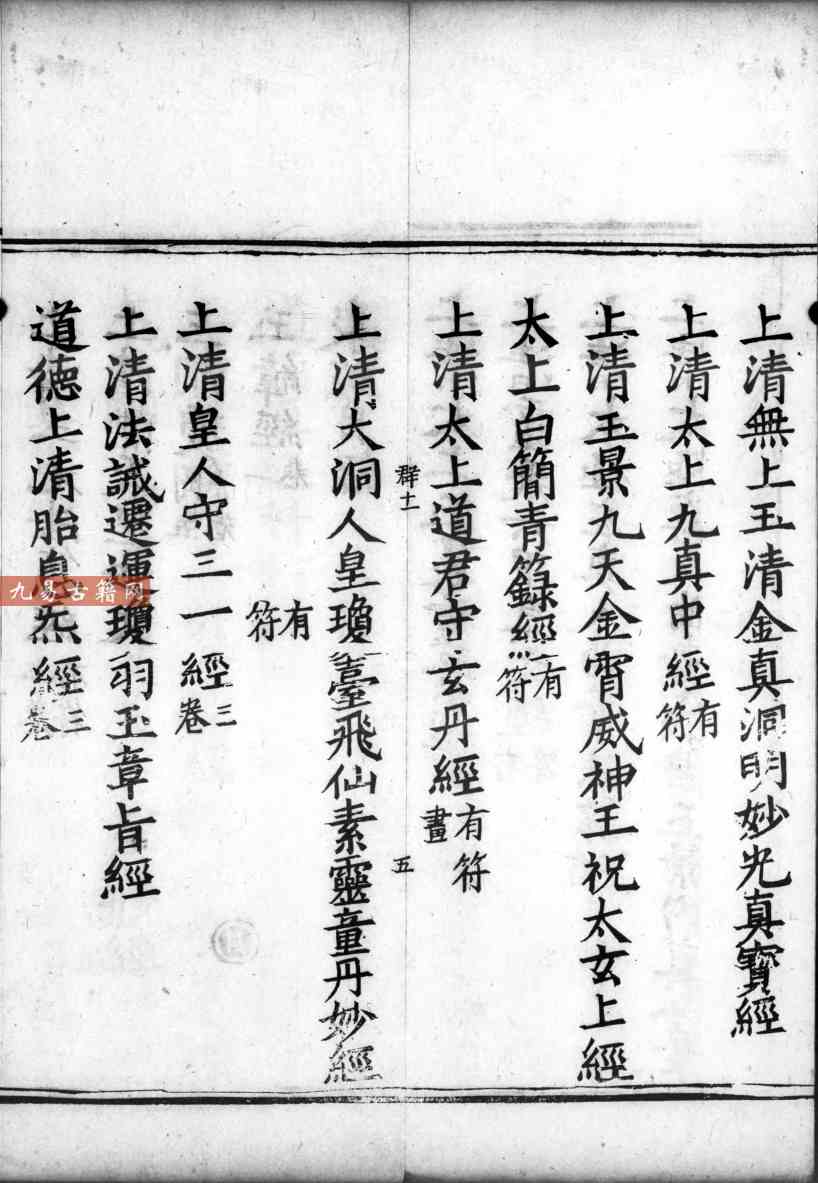 上清無上玉清金真洞明妙光真寶經
上清太上九真中經有符
上清玉景九天金霄威神王祝太玄上經
太上白簡青籙經有符
上清太上道君守玄丹經有符畫
群十一 五
上清大洞人皇瓊臺飛仙素靈童丹妙經
有符
上清皇人守三一經三卷
上清法誡遷運瓊羽玉章旨經
道德上清胎息炁經三卷
九易古籍网